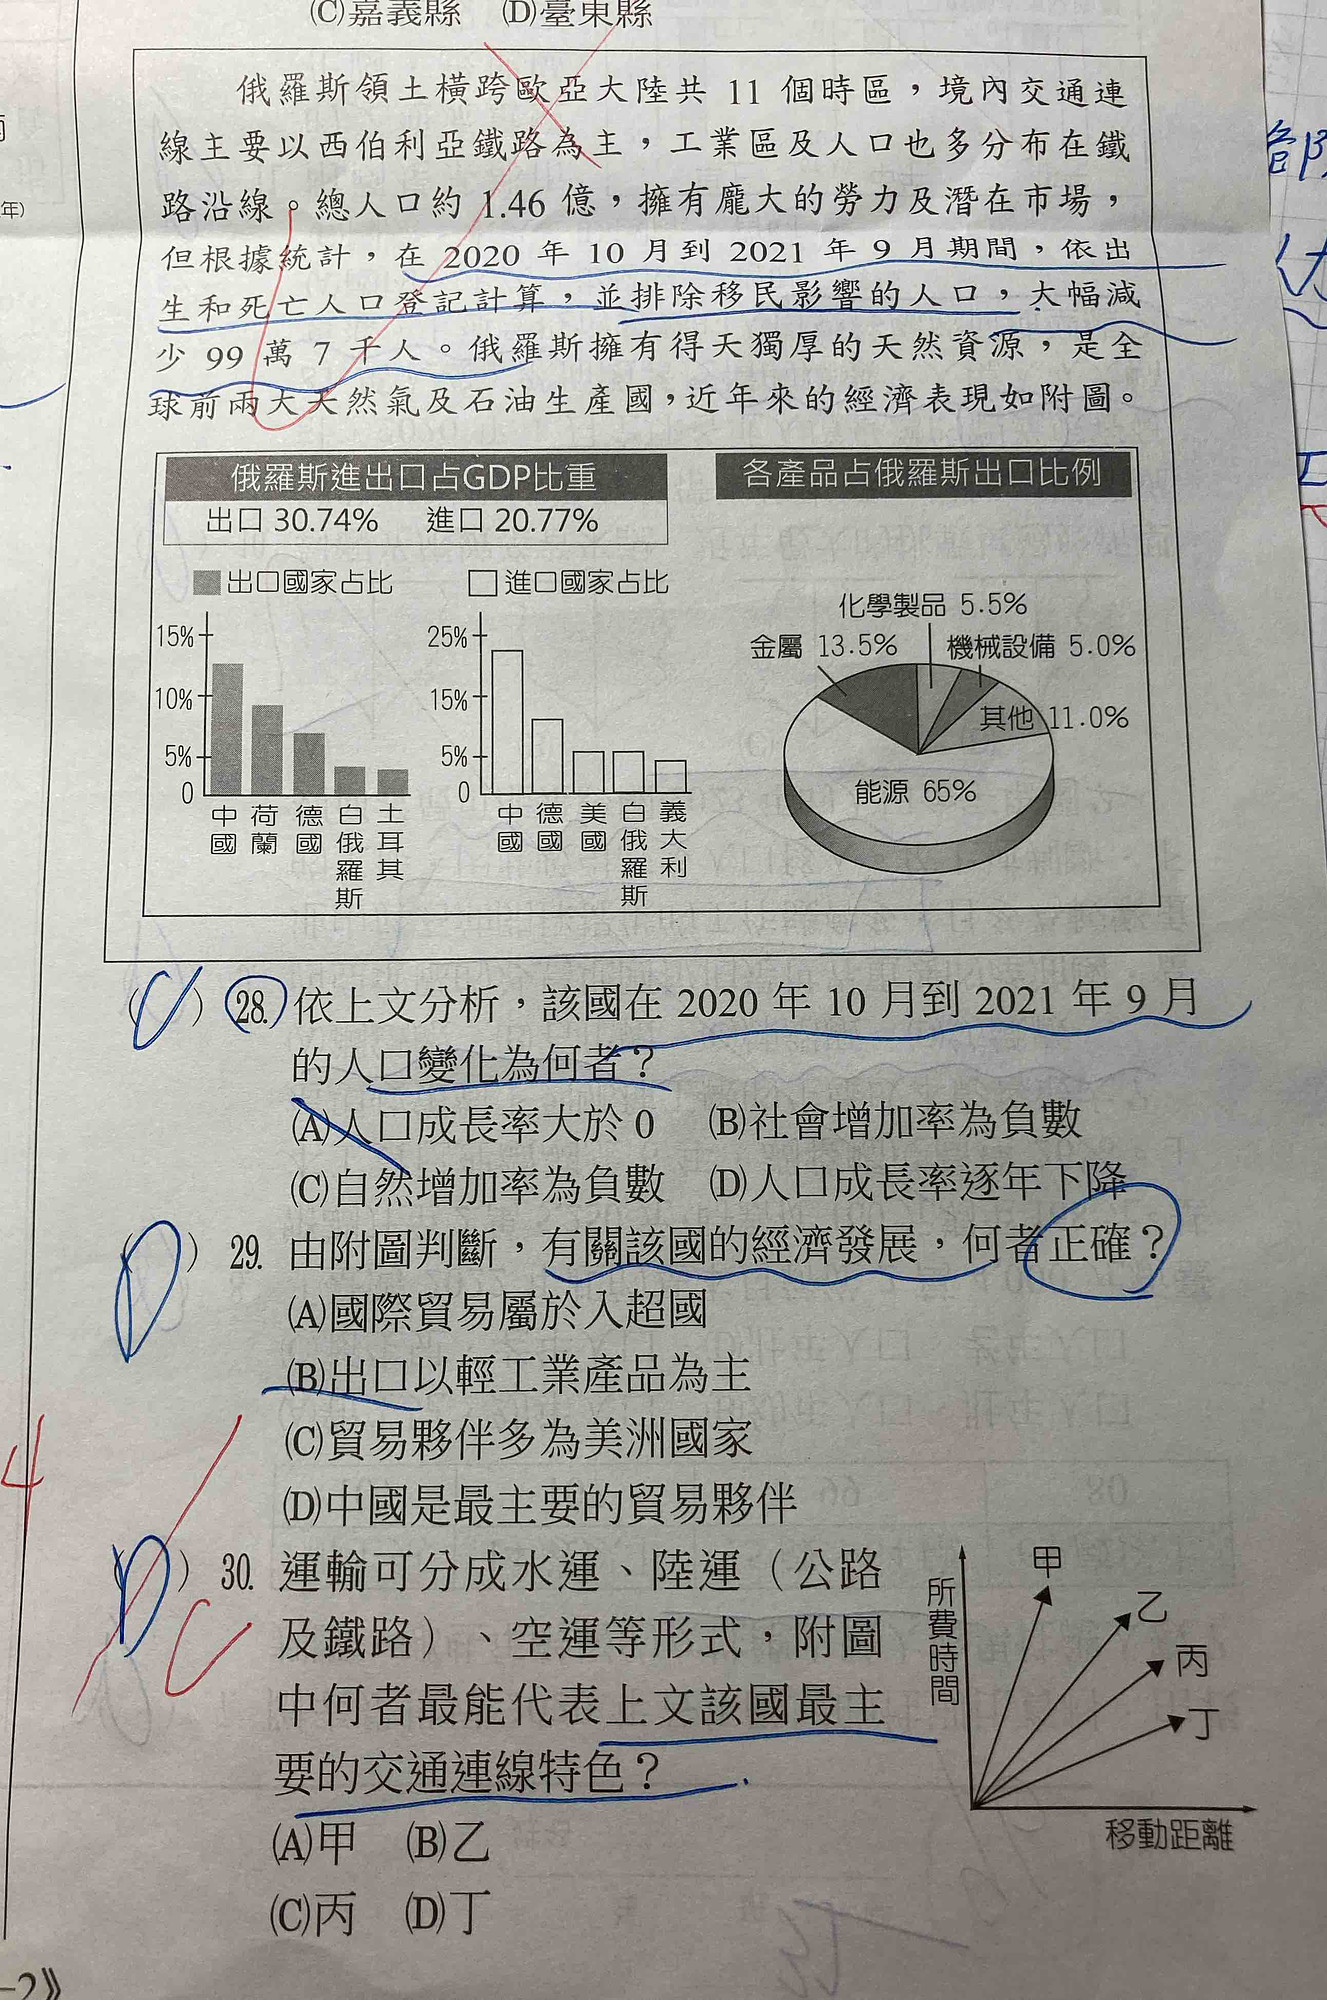 (C)嘉義縣 (D)臺東縣
俄羅斯領土橫跨歐亞大陸共 11 個時區，境內交通連
線主要以西伯利亞鐵路為主，工業區及人口也多分布在鐵
路沿線。總人口約 1.46 億，擁有龐大的勞力及潛在市場，
但根據統計，在 2020 年 10 月到 2021 年 9 月期間，依出
生和死亡人口登記計算，並排除移民影響的人口，大幅減
少 99 萬 7 千人。俄羅斯擁有得天獨厚的天然資源，是全
球前兩大天然氣及石油生產國，近年來的經濟表現如附圖。
俄羅斯進出口占GDP比重
出口 30.74% 進口 20.77%
出口國家占比
15%
10%
5%
0
中國 荷蘭 德國 白俄羅斯 土耳其
進口國家占比
25%
15%
5%
0
中國 德國 美國 白俄羅斯 義大利
各產品占俄羅斯出口比例
化學製品 5.5%
金屬 13.5%
機械設備 5.0%
其他 11.0%
能源 65%
(C) 28. 依上文分析，該國在 2020 年 10 月到 2021 年 9 月
的人口變化為何者？
(A)人口成長率大於 0 (B)社會增加率為負數
(C)自然增加率為負數 (D)人口成長率逐年下降
(D) 29. 由附圖判斷，有關該國的經濟發展，何者正確？
(A)國際貿易屬於入超國
(B)出口以輕工業產品為主
(C)貿易夥伴多為美洲國家
(D)中國是最主要的貿易夥伴
(D) 30. 運輸可分成水運、陸運（公路
C
及鐵路）、空運等形式，附圖
中何者最能代表上文該國最主
要的交通連線特色？
(A)甲 (B)乙
(C)丙 (D)丁
所費時間
甲
乙
丙
丁
移動距離
年)
4
-2》